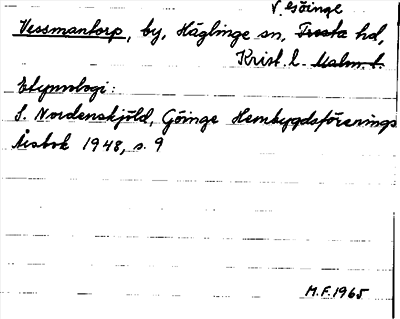 V. Göinge
Vessmantorp, by, Häglinge sn, Frosta hd,
Krist. l. Malm. l.
Etymologi:
S. Nordenskjöld, Göinge Hembygdsförenings
Årsbok 1948, s. 9
M.F. 1965